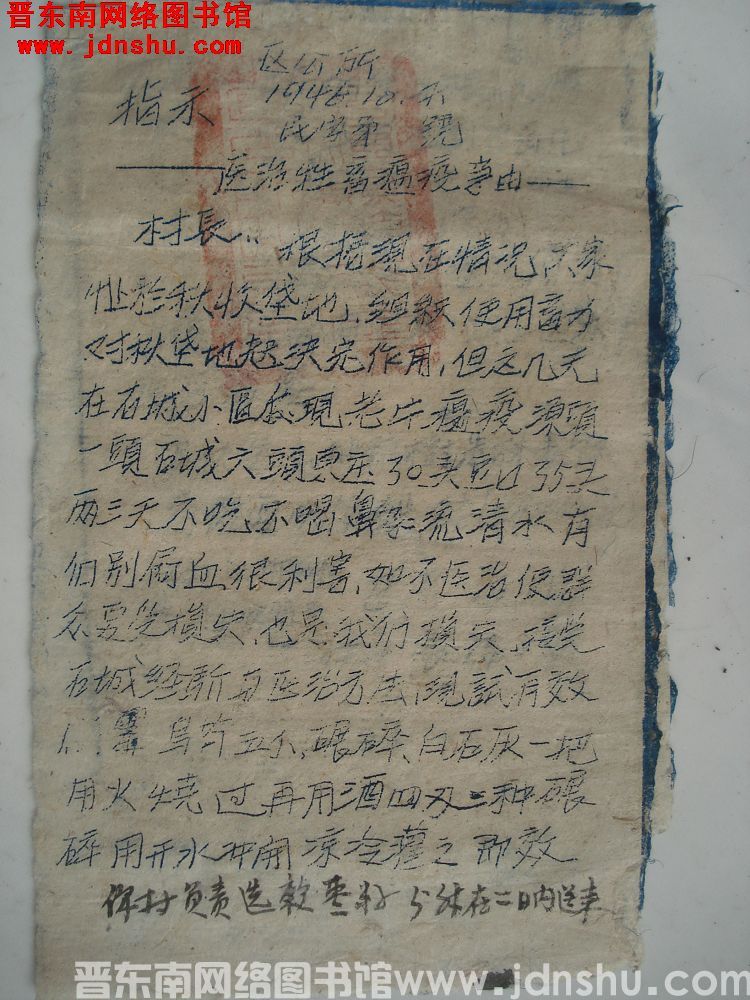 晋东南网络图书馆
www.jdnshu.com
区公所
指示 1948.10.
民 第 號
——医治牲畜瘟疫事由——
村長:: 根据現在情况大家
忙於秋收垡地,組織使用畜力
对秋垡地起決定作用,但这几天
在石城小區發現老片瘟疫源頭
一頭石城六頭東庄30头豆口35头
两三天不吃不喝鼻孔流清水有
们别屙血很利害,如不医治使群
众受些損失,也是我们損失,接些
石城經所与医治方法,現試有效
五个,碾碎,白石灰一把
用火燒过再用酒四刄二种碾
碎用开水冲開凉冷灌之即效
你村負責選 在二日内送来
晋东南网络图书馆www.jdnshu.com